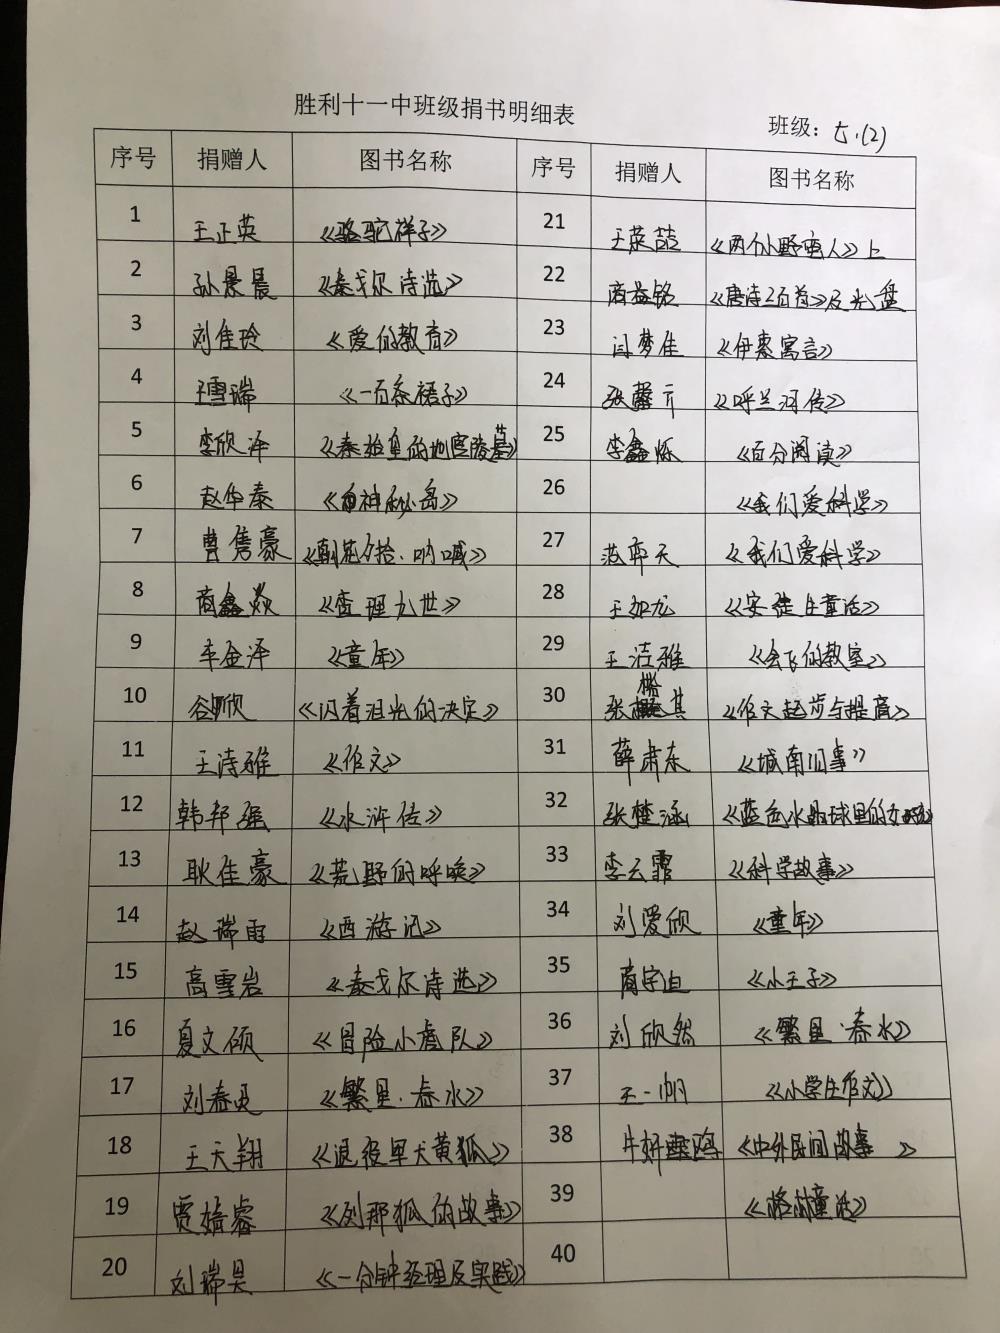 胜利十一中班级捐书明细表
班级：七.(2)
序号 捐赠人 图书名称 序号 捐赠人 图书名称
1 王正英 《骆驼祥子》 21 王英喆 《两个小野蛮人》上
2 孙景晨 《泰戈尔诗选》 22 商益铭 《唐诗三百首》及光盘
3 刘佳玲 《爱的教育》 23 闫梦佳 《伊索寓言》
4 王雪瑞 《一百条裙子》 24 张馨亓 《呼兰河传》
5 李欣泽 《秦始皇的地宫陵墓》 25 李鑫烁 《百分阅读》
6 赵华泰 《神秘岛》 26 《我们爱科学》
7 曹隽豪 《朝花夕拾·呐喊》 27 范弈天 《我们爱科学》
8 商鑫焱 《查理九世》 28 王加龙 《安徒生童话》
9 李金泽 《童年》 29 王洁雅 《会飞的教室》
10 谷欣 《闪着泪光的决定》 30 张其 《作文起步与提高》
11 王诗雅 《作文》 31 薛肃东 《城南旧事》
12 韩邦强 《水浒传》 32 张楚涵 《蓝色水晶球里的女孩》
13 耿佳豪 《荒野的呼唤》 33 李云霏 《科学故事》
14 赵瑞雨 《西游记》 34 刘爱欣 《童年》
15 高雪岩 《泰戈尔诗选》 35 商宇迪 《小王子》
16 夏文硕 《冒险小虎队》 36 刘欣然 《繁星·春水》
17 刘春 《繁星·春水》 37 王一帆 《小学生作文》
18 王天翔 《退役军犬黄狐》 38 牛妍 《中外民间故事》
19 贾婧睿 《列那狐的故事》 39 《格林童话》
20 刘瑞昊 《一分钟经理及实践》 40